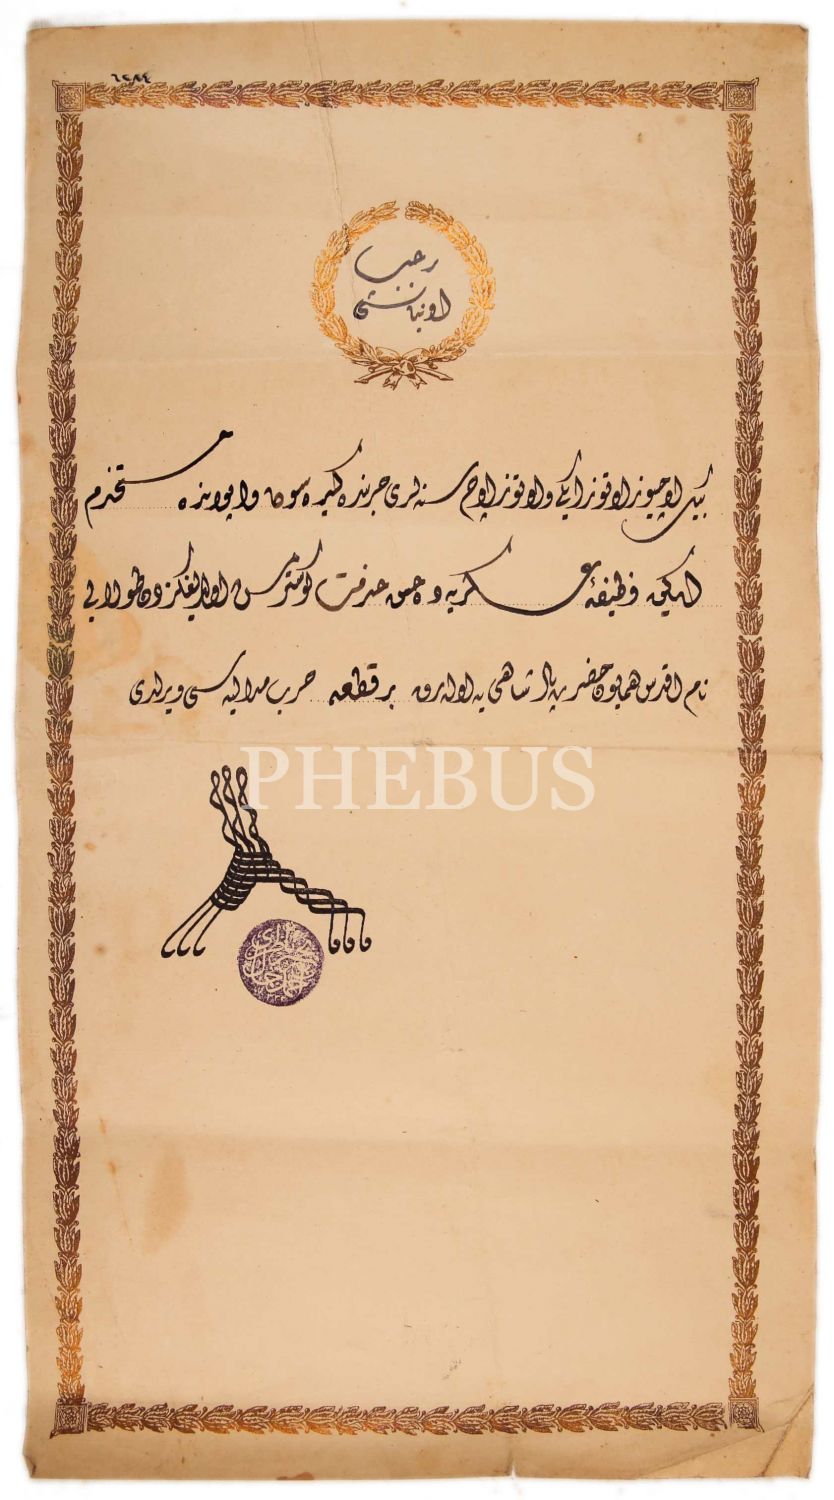 ٦٤٨٤
رجب
اونباشی
بیك اوچیوز اوتوز ایكی و اوتوز اوچ سنه لری حربنده كیره سون واپورنده مستخدم
ایكن وظیفهٔ عسكریه ده حسن خدمت كوسترمش اولدیغكزدن طولایی
نام اقدس همایون حضرت پادشاهی یه اوله رق بر قطعه حرب مدالیه سی ویرلدی
PHEBUS